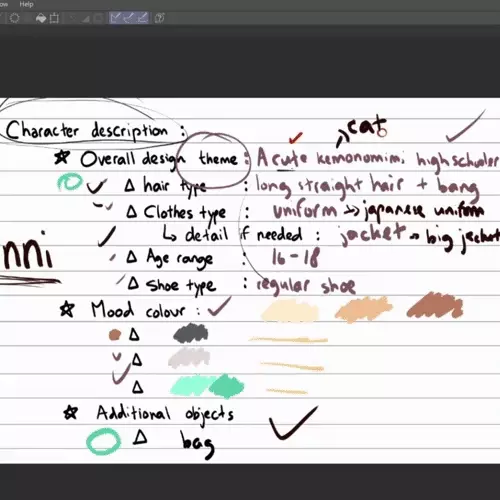 Help
cat
Character description :
Overall design theme : A cute kemonomimi highschooler
hair type : long straight hair + bang
Clothes type : uniform → japanese uniform
↳ detail if needed : jacket → big jacket
nni
Age range : 16-18
Shoe type : regular shoe
Mood colour :
Additional objects
bag